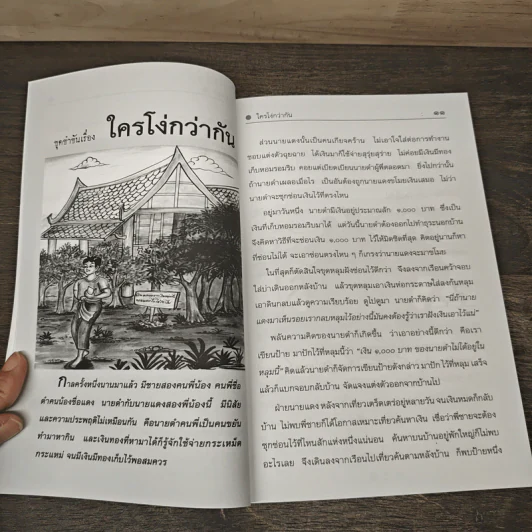 ชุดขำขันเรื่อง
ใครโง่กว่ากัน
กาลครั้งหนึ่งนานมาแล้ว มีชายสองคนพี่น้อง คนพี่ชื่อ
ดำคนน้องชื่อแดง นายดำกับนายแดงสองพี่น้องนี้ มีนิสัย
และความประพฤติไม่เหมือนกัน คือนายดำคนพี่เป็นคนขยัน
ทำมาหากิน และเงินทองที่หามาได้ก็รู้จักใช้จ่ายกระเหม็ด
กระแหม่ จนมีเงินมีทองเก็บไว้พอสมควร
ใครโง่กว่ากัน
ส่วนนายแดงนั้นเป็นคนเกียจคร้าน ไม่เอาใจใส่ต่อการทำงาน
ชอบแต่งตัวฉุยฉาย ได้เงินมาก็ใช้จ่ายสุรุ่ยสุร่าย ไม่ค่อยมีเงินมีทอง
เก็บหอมรอมริบ คอยแต่เบียดเบียนนายดำผู้พี่ตลอดมา ยิ่งไปกว่านั้น
ถ้านายดำเผลอเมื่อไร เป็นอันต้องถูกนายแดงขโมยเงินเสมอ ไม่ว่า
นายดำจะซุกซ่อนเงินไว้ที่ตรงไหน
อยู่มาวันหนึ่ง นายดำมีเงินอยู่ประมาณสัก ๑,๐๐๐ บาท ซึ่งเป็น
เงินที่เก็บหอมรอมริบมาได้ แต่วันนี้นายดำต้องออกไปทำธุระนอกบ้าน
จึงคิดหาวิธีที่จะซ่อนเงิน ๑,๐๐๐ บาท ไว้ให้มิดชิดที่สุด คิดอยู่นานก็หา
ที่ซ่อนไม่ได้ จะเอาซ่อนตรงไหน ๆ ก็เกรงว่านายแดงจะมาขโมย
ในที่สุดก็ตัดสินใจขุดหลุมฝังซ่อนไว้ดีกว่า จึงลงจากเรือนคว้าจอบ
ใส่บ่าเดินออกหลังบ้าน แล้วขุดหลุมเอาเงินห่อกระดาษใส่ลงก้นหลุม
เอาดินกลบแล้วดูความเรียบร้อย ดูไปดูมา นายดำก็คิดว่า “นี่ถ้านาย
แดงมาเห็นรอยเรากลบหลุมไว้อย่างนี้มันคงต้องรู้ว่าเราฝังเงินเอาไว้แน่”
พลันความคิดของนายดำก็เกิดขึ้น ว่าเอาอย่างนี้ดีกว่า คือเรา
เขียนป้าย มาปักไว้ที่หลุมนี้ว่า “เงิน ๑,๐๐๐ บาท ของนายดำไม่ได้อยู่ใน
หลุมนี้” คิดแล้วนายดำก็จัดการเขียนป้ายดังกล่าว มาปักไว้ที่หลุม เสร็จ
แล้วก็แบกจอบกลับบ้าน จัดแจงแต่งตัวออกจากบ้านไป
ฝ่ายนายแดง หลังจากเที่ยวเตร็ดเตร่อยู่หลายวัน จนเงินหมดก็กลับ
บ้าน ไม่พบพี่ชายก็ได้โอกาสเหมาะเที่ยวค้นหาเงิน เชื่อว่าพี่ชายจะต้อง
ซุกซ่อนไว้ที่ไหนสักแห่งหนึ่งแน่นอน ค้นหาบนบ้านอยู่พักใหญ่ก็ไม่พบ
อะไรเลย จึงเดินลงจากเรือนไปเที่ยวค้นตามหลังบ้าน ก็พบป้ายหนึ่ง